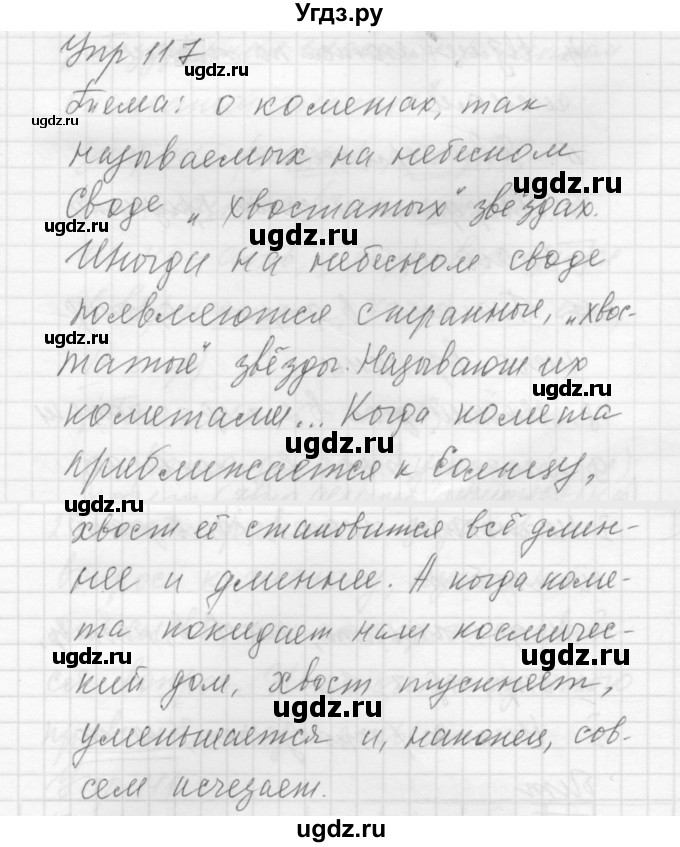 Угдз.ру
Упр 117
ugdz.ru
Тема: о кометах, так
ugdz.ru
называемых на небесном
ugdz.ru
Своде „хвостатых" звёздах.
ugdz.ru
ugdz.ru
Иногда на небесном своде
появляются странные, „хвос-
татые" звёзды. Называют их
кометами... Когда комета
ugdz.ru
приближается к Солнцу,
хвост её становится всё длин-
ugdz.ru
нее и длиннее. А когда коме-
та покидает наш космичес-
ugdz.ru
ugdz.ru
кий дом, хвост тускнеет,
ugdz.ru
уменьшается и, наконец, сов-
сем исчезает.
ugdz.ru